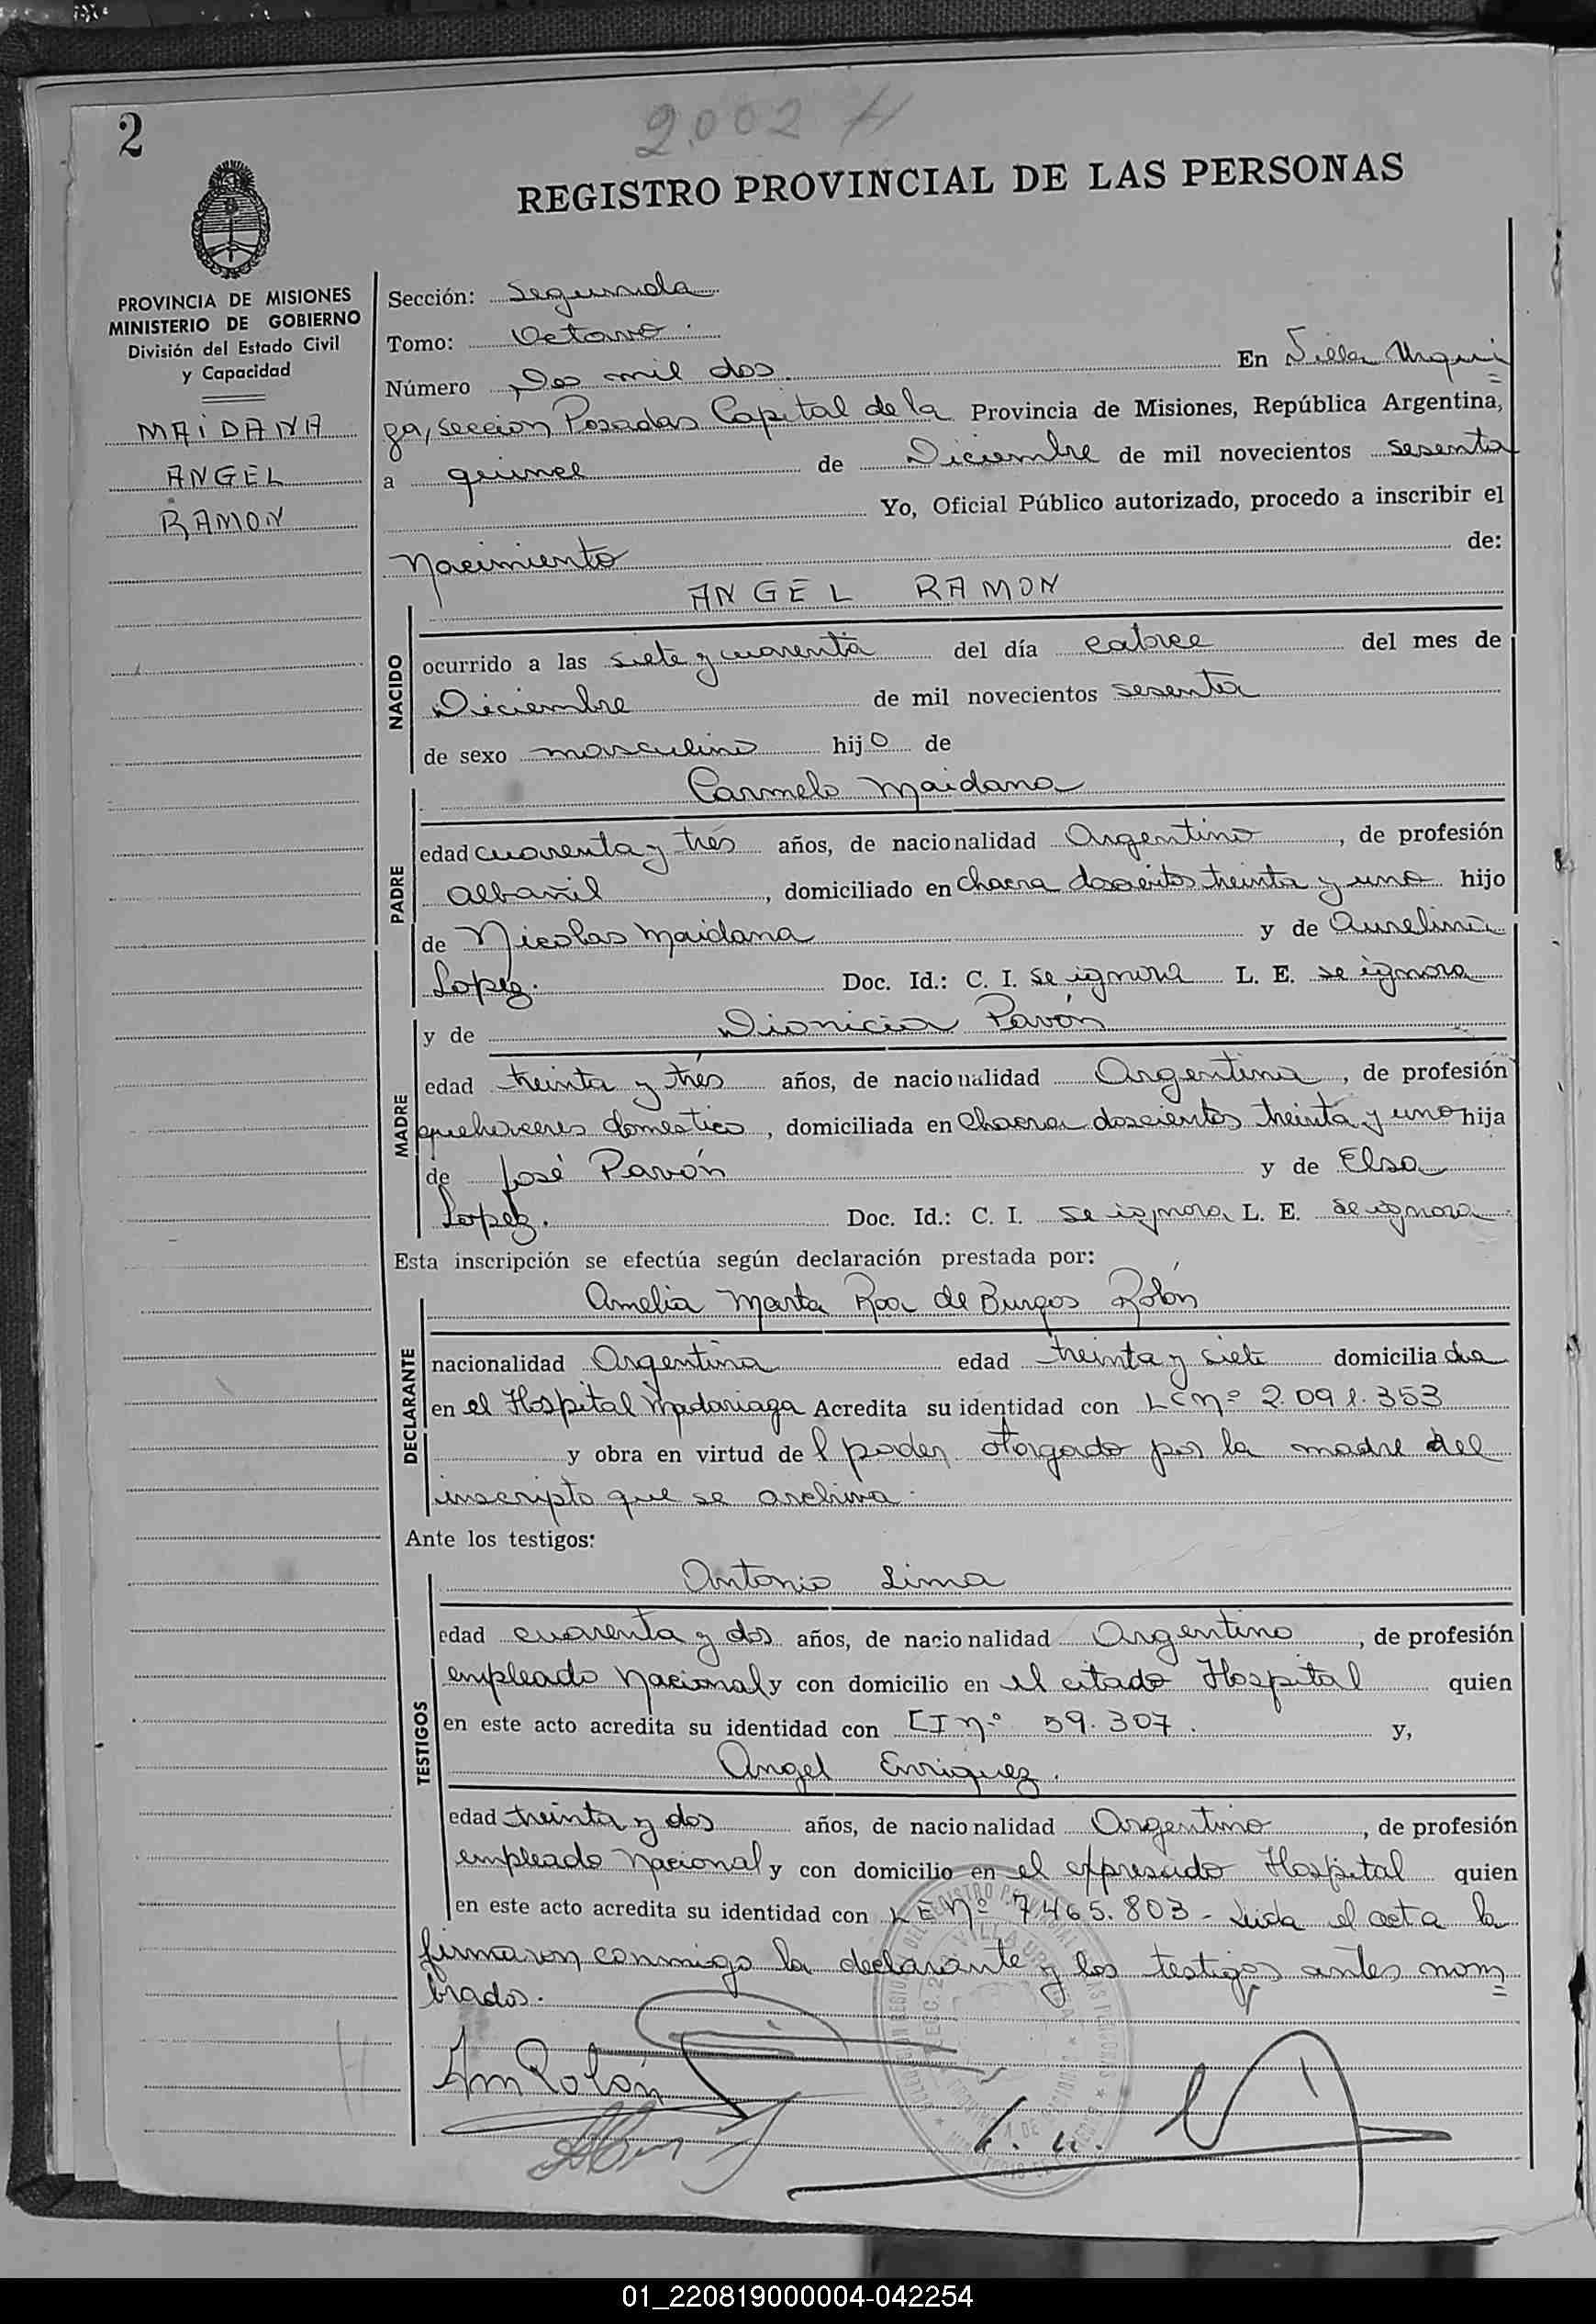 2
2.002 H
REGISTRO PROVINCIAL DE LAS PERSONAS
PROVINCIA DE MISIONES
MINISTERIO DE GOBIERNO
División del Estado Civil
y Capacidad
MAIDANA
ANGEL
RAMON
Sección: Segunda
Tomo: Octavo.
Número Dos mil dos. En Villa Urqui
za, sección Posadas Capital de la Provincia de Misiones, República Argentina,
a quince de Diciembre de mil novecientos sesenta
Yo, Oficial Público autorizado, procedo a inscribir el
Nacimiento de:
ANGEL RAMON
NACIDO
ocurrido a las siete y cuarenta del día catorce del mes de
Diciembre de mil novecientos sesenta
de sexo masculino hijo de
Carmelo Maidana
PADRE
edad cuarenta y trés años, de nacionalidad Argentino, de profesión
albañil, domiciliado en chacra doscientos treinta y uno hijo
de Nicolas Maidana y de Aurelina
Lopez. Doc. Id.: C. I. se ignora L. E. se ignora
y de Dionicia Pavón
MADRE
edad treinta y trés años, de nacionalidad Argentina, de profesión
quehaceres domestico, domiciliada en Chacra doscientos treinta y uno hija
de José Pavón y de Elsa
Lopez. Doc. Id.: C. I. se ignora L. E. se ignora
Esta inscripción se efectúa según declaración prestada por:
Amelia Marta Roa de Burgos Rolón
DECLARANTE
nacionalidad Argentina edad treinta y siete domiciliada
en el Hospital Madariaga Acredita su identidad con LC nº 2.091.353
y obra en virtud del poder otorgado por la madre del
inscripto que se archiva.
Ante los testigos:
Antonio Lima
TESTIGOS
edad cuarenta y dos años, de nacionalidad Argentino, de profesión
empleado Nacional y con domicilio en el citado Hospital quien
en este acto acredita su identidad con CI nº 59.307. y,
Angel Enriquez.
edad treinta y dos años, de nacionalidad Argentino, de profesión
empleado Nacional y con domicilio en el expresado Hospital quien
en este acto acredita su identidad con LE Nº 7465.803 - Leida el acta la
firmaron conmigo la declarante y los testigos antes nom
brados.
Am Rolón
01_220819000004-042254